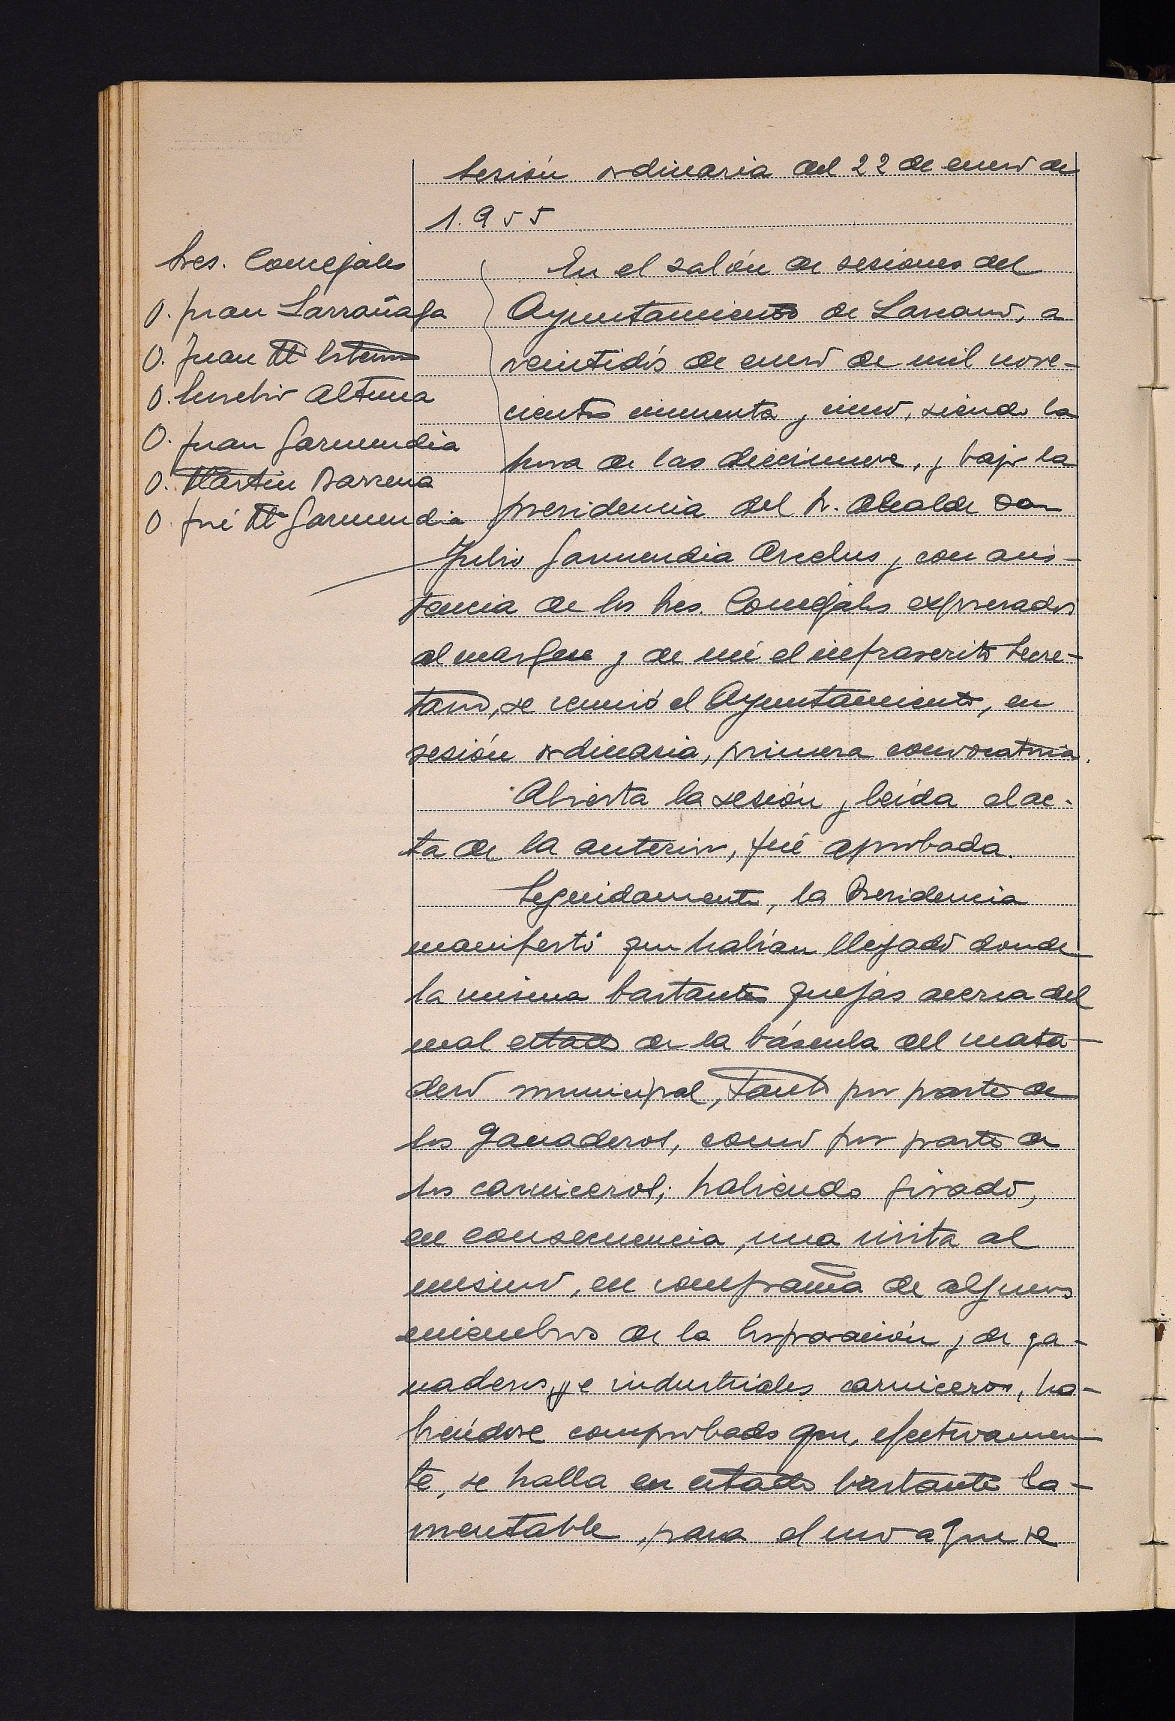 Sesión ordinaria del 22 de enero de
1.955
Sres. Concejales
D. Juan Larrañaga
D. Juan Mª
D. Eusebio Altuna
D. Juan Garmendia
D. Martín Barrena
D. José Mª Garmendia
En el salón de sesiones del
Ayuntamiento de Lazcano, a
veintidós de enero de mil nove-
cientos cincuenta y cinco, siendo la
hora de las diecinueve, y bajo la
presidencia del Sr. Alcalde Don
Julio Garmendia Arcelus y con asis-
tencia de los Sres. Concejales expresados
al margen y de mí el infrascrito Secre-
tario, se reunió el Ayuntamiento, en
sesión ordinaria, primera convocatoria.
Abierta la sesión y leída el ac-
ta de la anterior, fué aprobada.
Seguidamente, la Presidencia
manifestó que habían llegado donde
la misma bastantes quejas acerca del
mal estado de la báscula del mata-
dero municipal, tanto por parte de
los ganaderos, como por parte de
los carniceros; habiendo girado,
en consecuencia, una visita al
mismo, en compañía de algunos
miembros de la Corporación y de ga-
naderos e industriales carniceros, ha-
biéndose comprobado que, efectivamen-
te, se halla en estado bastante la-
mentable, para el uso a que se